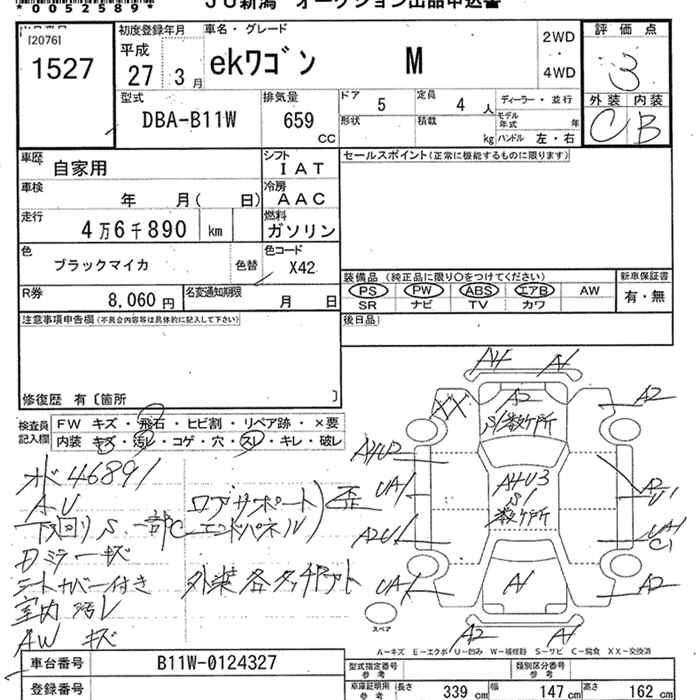 *0052589*
JU新潟 オークション出品申込書
[2076]
1527
初度登録年月
平成
27年 3月
車名・グレード
ekワゴン M
2WD
・
4WD
評価点
3
外装 内装
C B
型式
DBA-B11W
排気量
659 cc
ドア 5
定員 4 人
ディーラー・並行
形状
積載 kg
モデル年式 年
ハンドル 左・右
車歴 自家用
シフト IAT
セールスポイント(正常に機能するものに限ります)
車検 年 月( 日)
冷房 AAC
走行 4万6千890 km
燃料 ガソリン
色 ブラックマイカ
色替
色コード X42
装備品 (純正品に限り〇をつけてください)
新車保証書
PS PW ABS エアB AW
有・無
SR ナビ TV カワ
R券 8,060円
名変通知期限 月 日
後日品
注意事項申告欄(不具合内容等は具体的に記入して下さい)
修復歴 有〔箇所 〕
検査員記入欄
FW キズ・飛石・ヒビ割・リペア跡・×要
内装 キズ・汚レ・コゲ・穴・スレ・キレ・破レ
46891
A.U
下回りS. 一部C
ロアサポート
エンドパネル
歪
ミラーキズ
シートカバー付き
外装各
室内汚レ
AW キズ
A4 A1
XX A2 A2
S1数ヶ所
A4U2
UA1
A2U1
UA1
A4U3
S1
数ヶ所
A2
U1
UA1
C1
A1
A2
A2 A1
スペア
A-キズ E-エクボ U-凹み W-補修跡 S-サビ C-腐食 XX-交換済
車台番号 B11W-0124327
登録番号
型式指定番号 参考
類別区分番号 参考
車庫証明用 参考
長さ 339 cm
幅 147 cm
高さ 162 cm